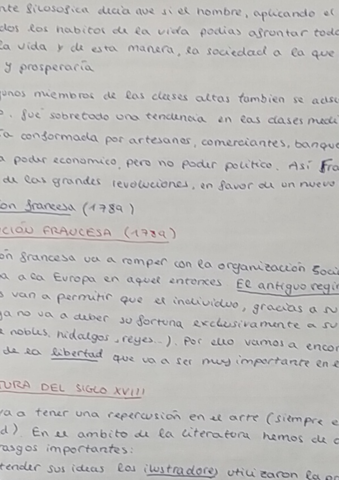 nte filosofica decía que si el hombre, aplicando el
dos los habitos de la vida podias afrontar todo
la vida y de esta manera, la sociedad a la que
y prosperaría
gonos miembros de las clases altas tambien se adsc
o. fue sobretodo una tendencia en las clases medi
ra conformada por artesanos, comerciantes, banque
a poder economico, pero no poder politico. Así Fra
de las grandes revoluciones, en favor de un nuevo
ion francesa (1789)
CIÓN FRANCESA (1789)
ón francesa va a romper con la organización Soci
a a la Europa en aquel entonces El antiguo regi
s van a permitir que el individuo, gracias a su
ya no va a deber su fortuna exclusivamente a su
e nobles, hidalgos, reyes...). Por ello vamos a encon
de la libertad que va a ser muy importante en e
TURA DEL SIGLO XVIII
va a tener una repercusión en el arte (siempre e
d). En el ambito de la literatura hemos de d
rasgos importantes:
tender sus ideas los ilustradores utilizaron la pr